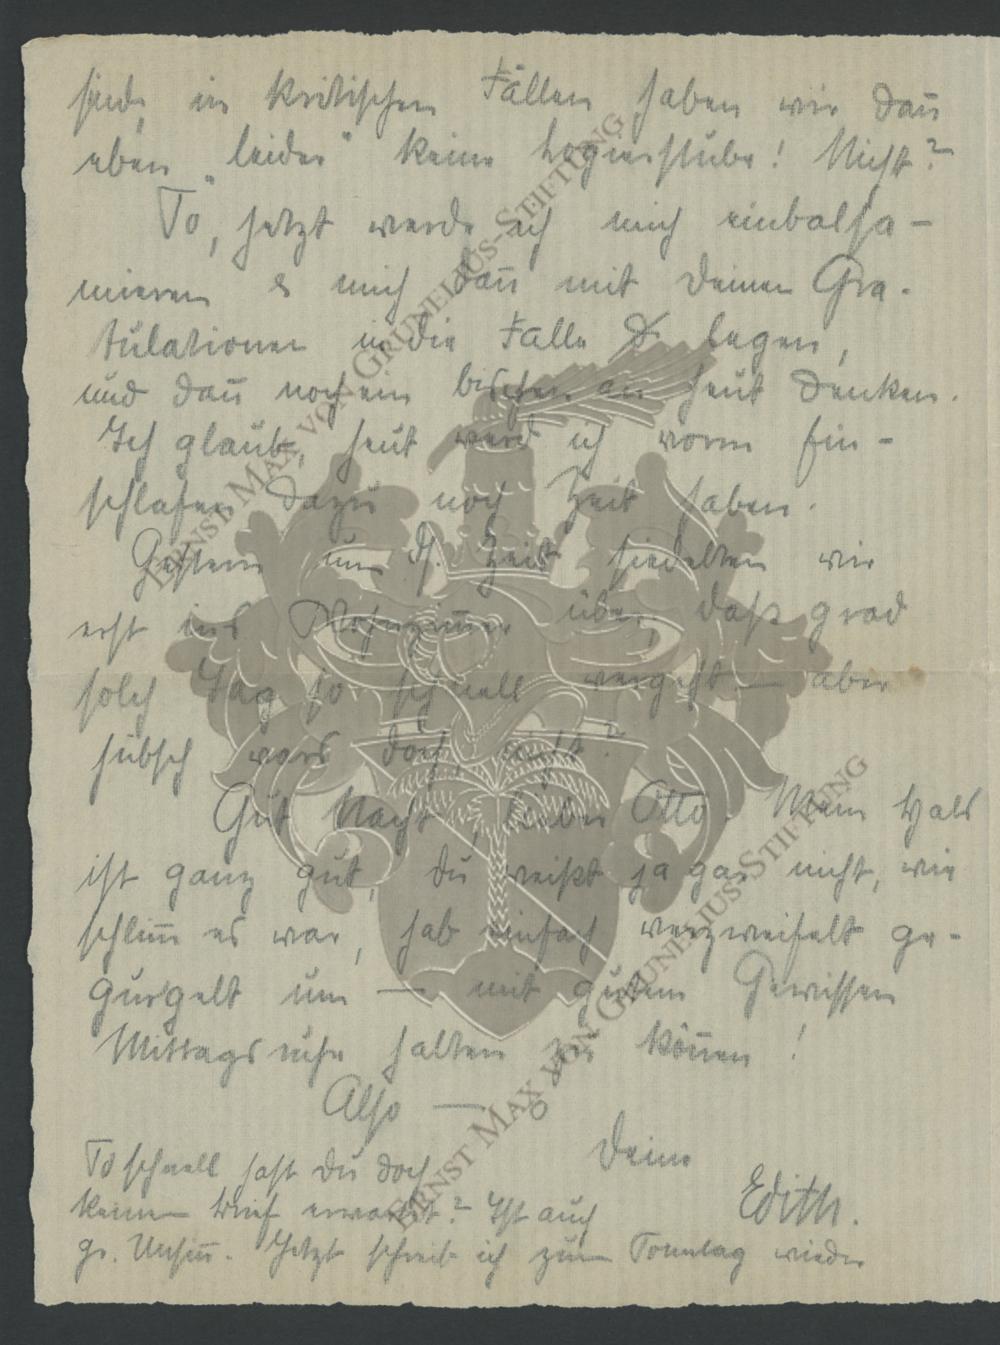 sind, in kritischen Fällen haben wir dan̄
eben „leider" keine Logierstube! Nicht?
So, jetzt werde ich mich einbalsa-
mieren & mich dan̄ mit Deinen Gra-
tulationen in die Falle legen,
und dan̄ noch ein bischen an heut denken.
Ich glaub, heut werd ich vorm Ein-
schlafen dazu noch Zeit haben.
Gestern um d. Zeit siedelten wir
erst ins Wohnzim̄er über, daß grad
solch Tag so schnell vergeht — aber
hübsch wars doch, nicht?
Gut Nacht, lieber Otto. Mein Hals
ist ganz gut, du weißt ja gar nicht, wie
schlim̄ es war, hab einfach verzweifelt ge-
gurgelt um — mit gutem Gewissen
Mittagsruhe halten zu kön̄en!
Also —.
Deine
Edith.
So schnell hast Du doch
keinen Brief erwartet? Ist auch
gr. Unsin̄. Jetzt schreib ich zum Sonntag wieder
ERNST MAX VON GRUNELIUS-STIFTUNG
ERNST MAX VON GRUNELIUS-STIFTUNG